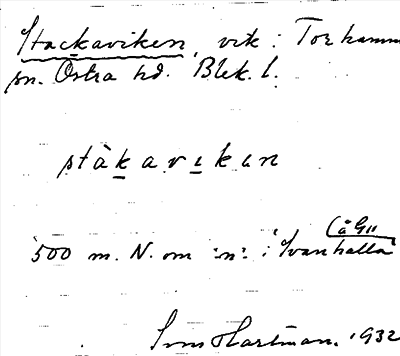 Stackaviken, vik i Torhamn
sn. Östra hd. Blek. l.
stàkavikan
(å GII
500 m. N. om "n" i Svanhalla
Sven Hartman. 1932